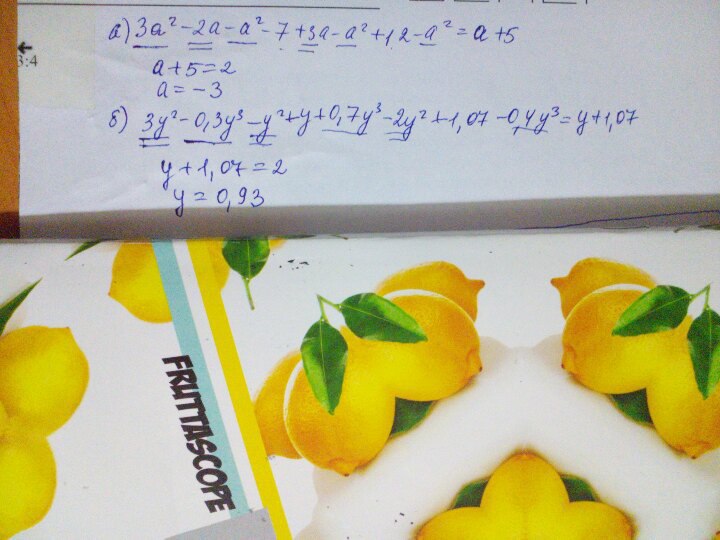 а) 3a² - 2a - a² - 7 + 3a - a² + 12 - a² = a + 5
a + 5 = 2
a = - 3
б) 3y² - 0,3y³ - y² + y + 0,7y³ - 2y² + 1,07 - 0,4y³ = y + 1,07
y + 1,07 = 2
y = 0,93
3:4
FRUTTASCOPE